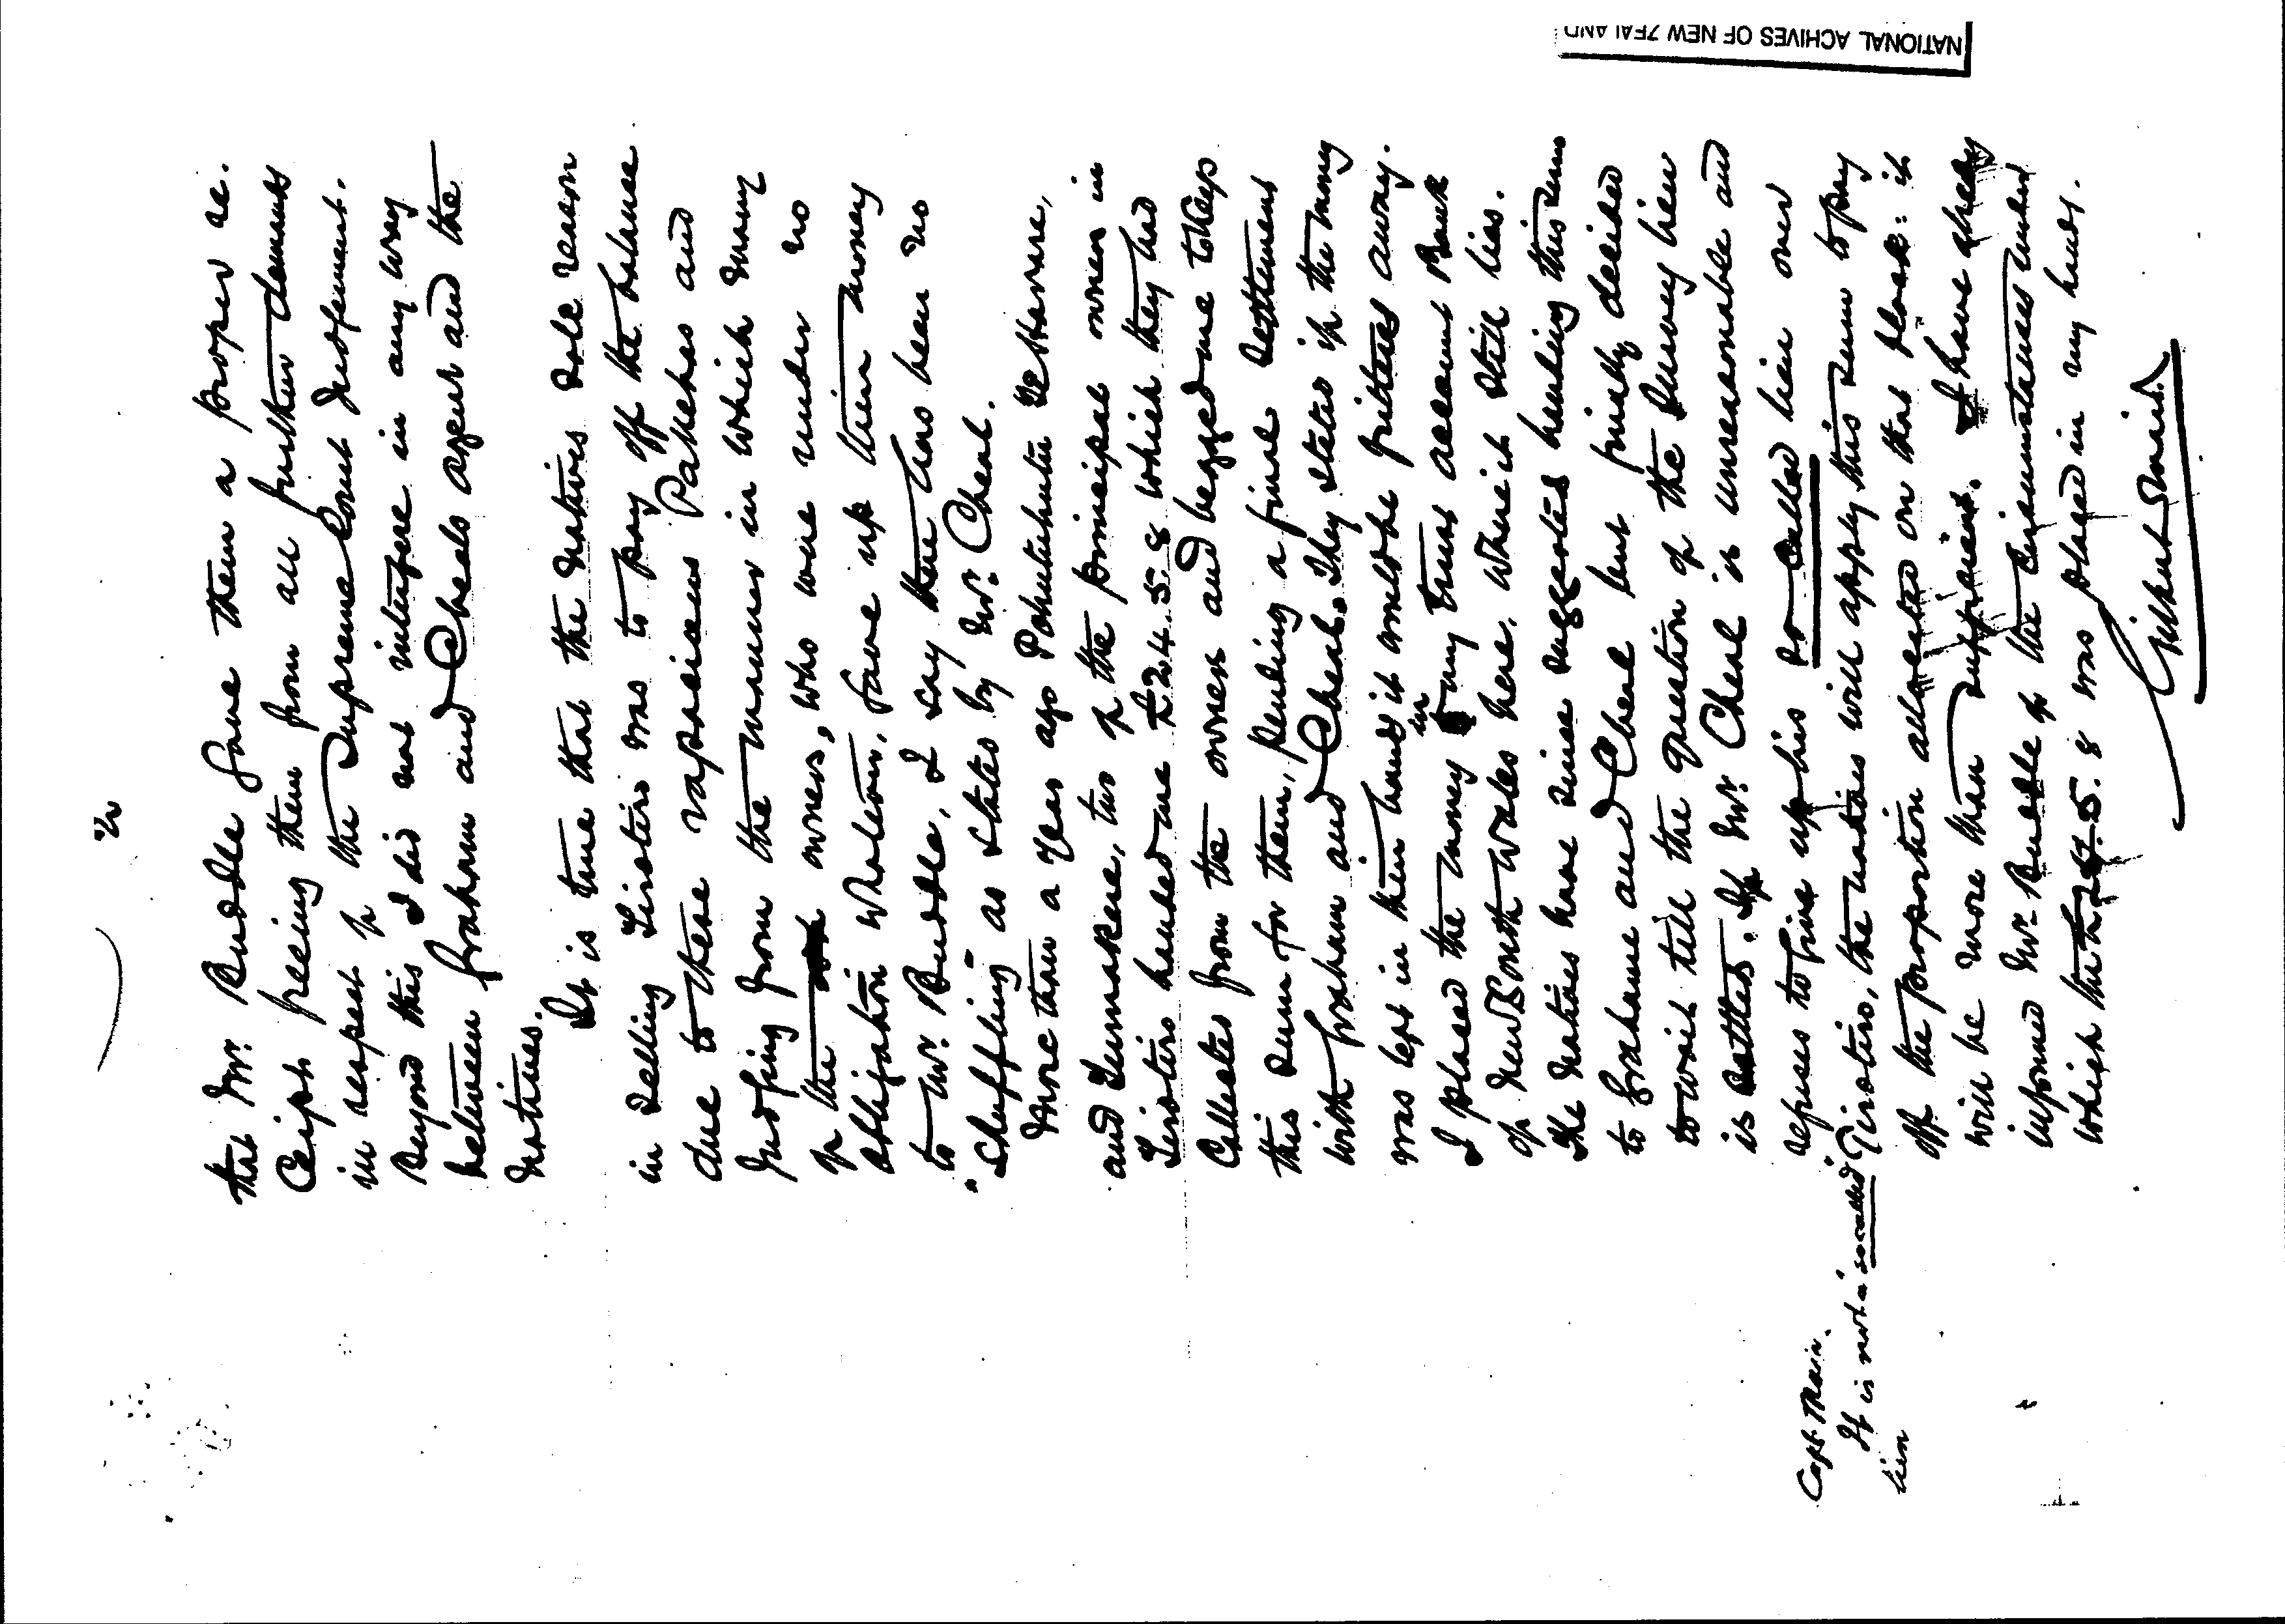 2
that Mr. Buddle gave them a proper re-
ceipt freeing them from all further demands
in respect of the Supreme Court Judgement.
Beyond this I did not interfere in any way
between Graham and Cheals agent and the
natives.
It is true that the natives sole reason
in selling Tirotiro was to pay off the balance
due to these rapacious Pakehas and
judging from the manner in which many
of the owners, who were under no
obligation whatever, gave up their money
to Mr. Buddle, I say there has been no
"shuffling" as stated by Mr. Cheal.
More than a year ago Pohutuhutu Te Harare,
and two of the principal owners in
Tirotiro handed me £24.5.8 which they had
collected from the owners and begged me to keep
this sum for them, pending a final settlement
with Graham and Cheal. They stated if the money
was left in their hands it would be frittered away.
I placed the money in my trust account Bank
of New South Wales here, where it still lies.
The natives have since suggested handing this sum
to Grahame and Cheal but finally decided
to wait till the question of the survey lien
is settled. If Mr. Cheal is unreasonable and
refuses to give up his so called lien over
Tirotiro, the natives will apply this sum to pay
off the proportion allocated on that block: it
will be more than sufficient. I have already
informed Mr. Buddle of the circumstances under
which the £24.5.8 was placed in my hands.
Gilbert Mair.
Capt. Mair.
It is not a "so called"
lien
NATIONAL ACHIVES OF NEW ZEALAND